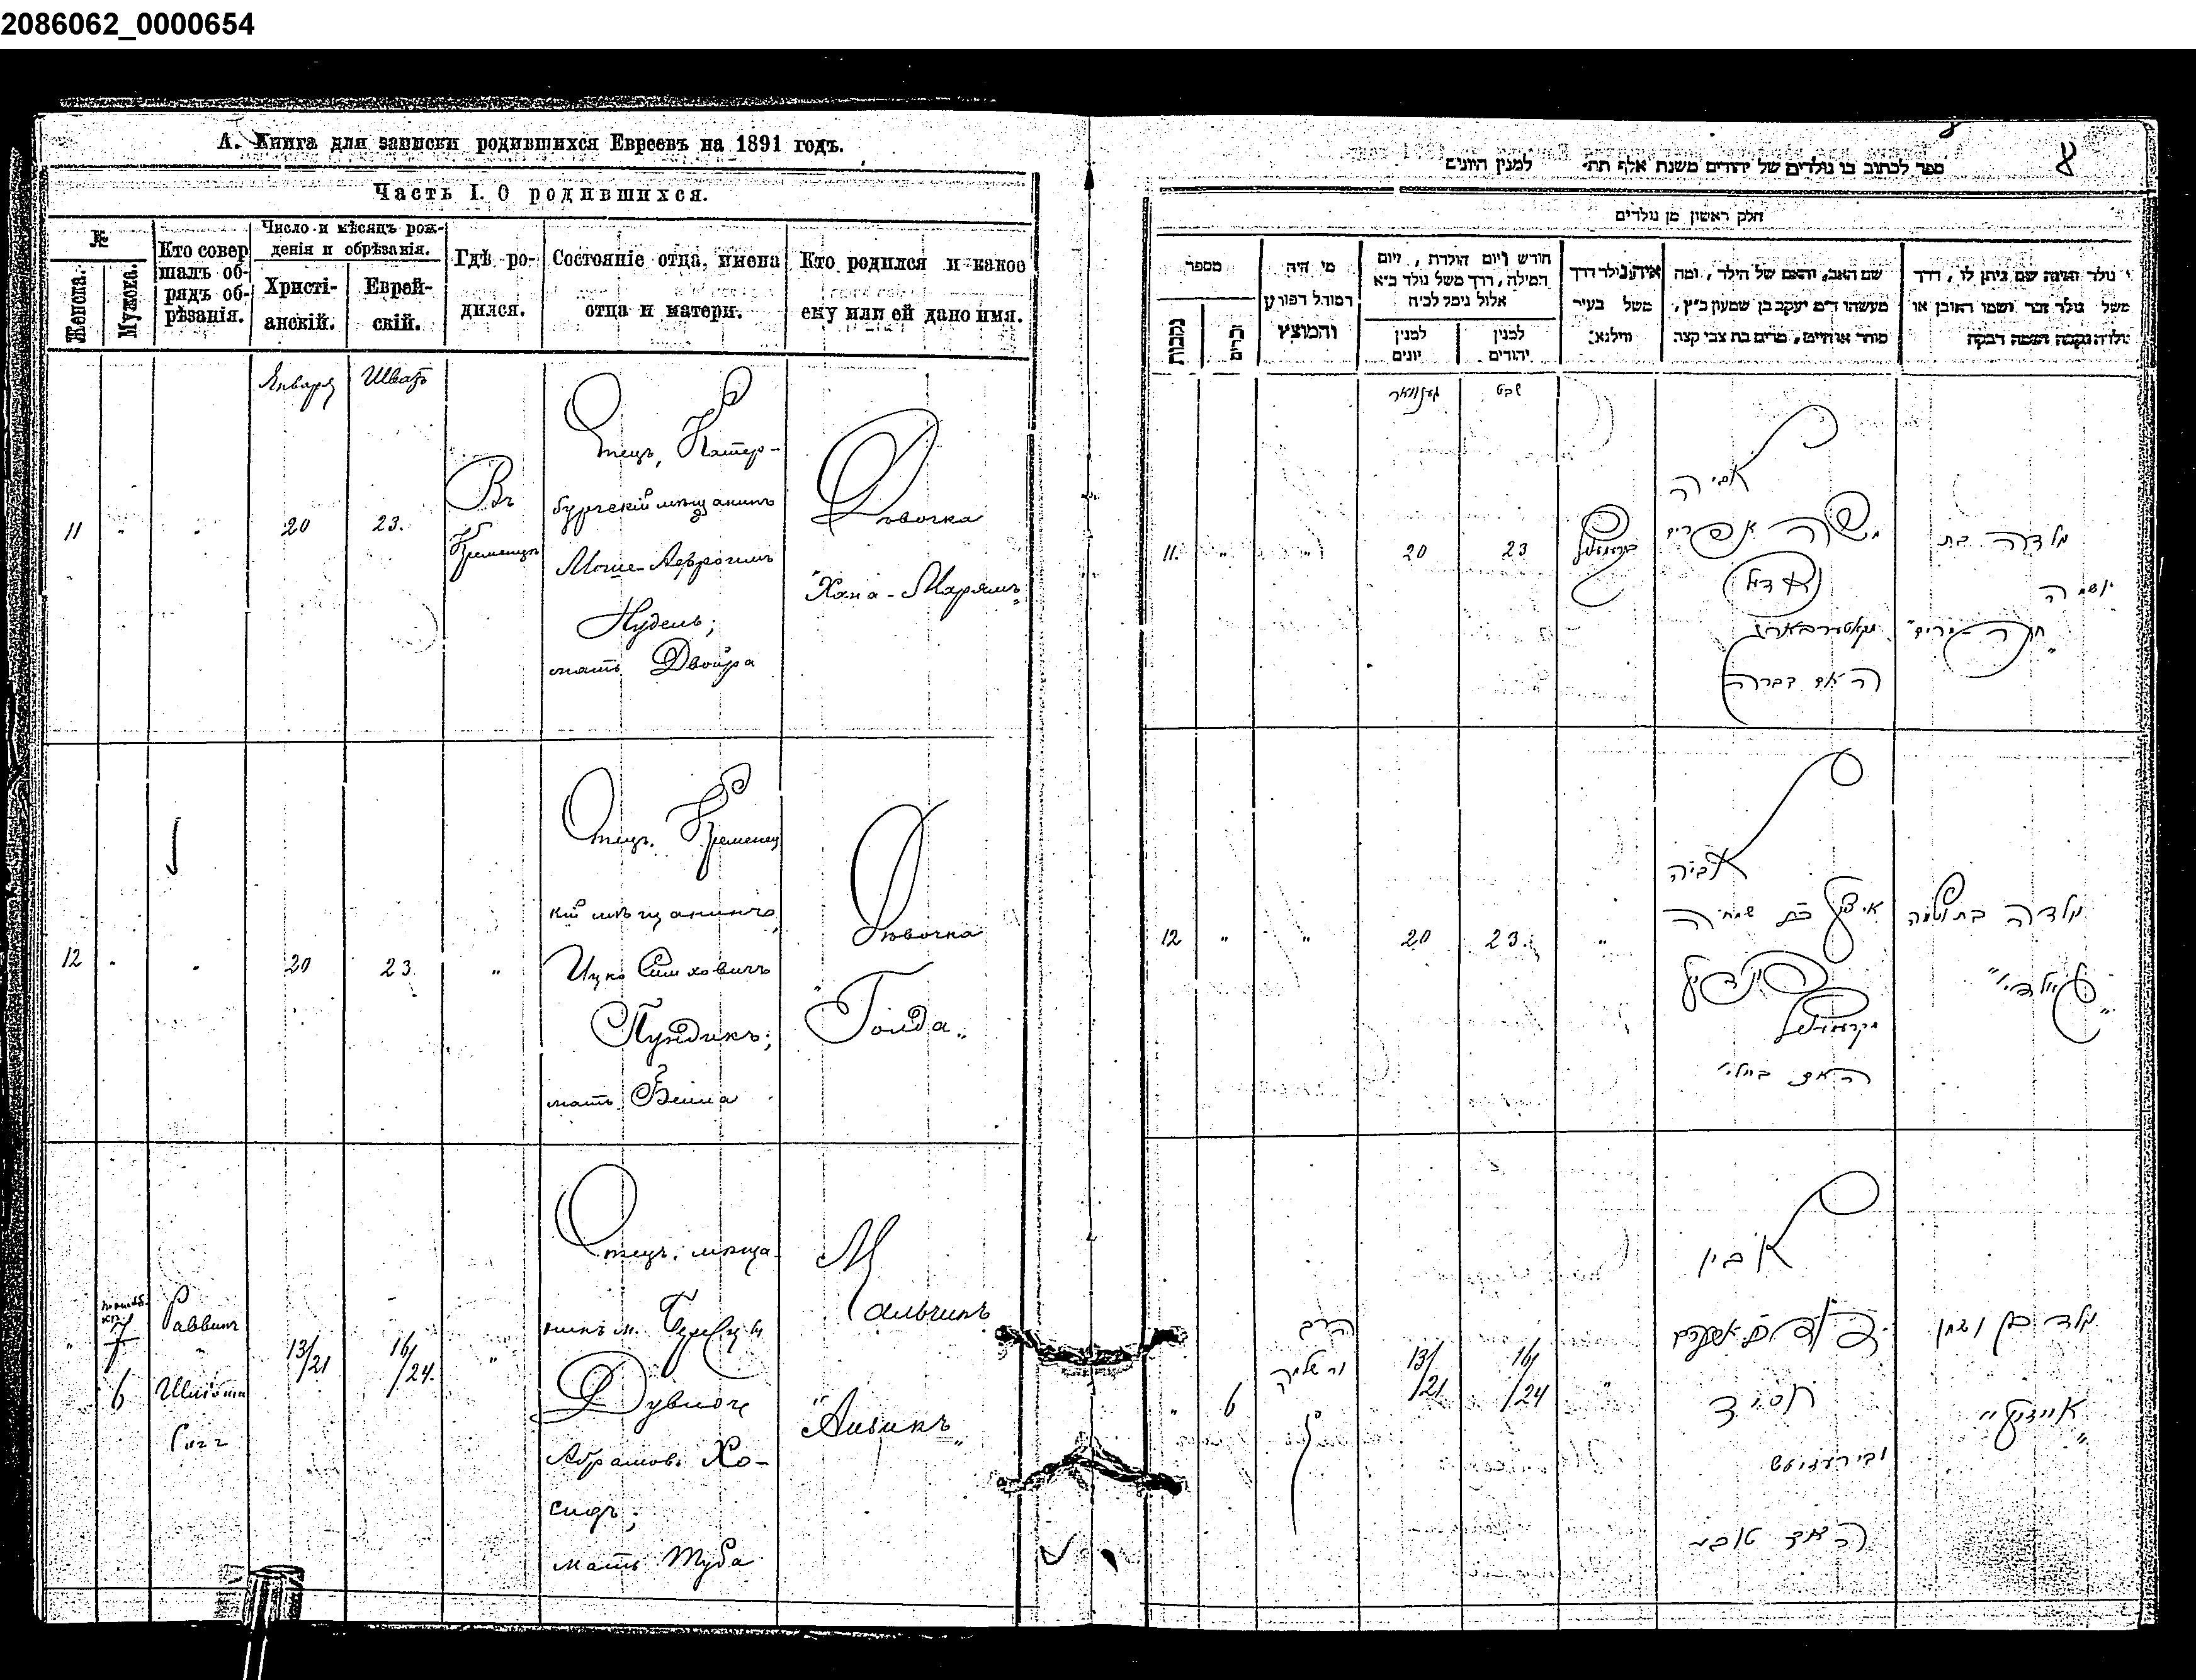 2086062_0000654
А. Книга для записки родившихся Евреевъ на 1891 годъ.
Часть I. О родившихся.
№
Женска.
Мужска.
Кто совер
шалъ об-
рядъ об-
рѣзанія.
Число и мѣсяцъ рож-
денія и обрѣзанія.
Христі-
анскій.
Еврей-
скій.
Гдѣ ро-
дился.
Состояніе отца, имена
отца и матери.
Кто родился и какое
ему или ей дано имя.
Января
Шватъ
11
"
"
20
23.
Въ
Кременцѣ
Отецъ, Катер-
бургскій мѣщанинъ
Моше-Аврогимъ
Нудель;
мать Двойра
Дѣвочка
"Хана-Марямъ"
12
"
"
20
23
"
Отецъ. Кременец
кій мѣщанинъ
Ицко Симховичъ
Пундикъ;
мать Бейла
Дѣвочка
"Голда"
"
7
6
Раввинъ
"
Шліома
13/21
16/24.
"
Отецъ. мѣща-
нинъ м.
Абрамов. Хо-
сидъ;
мать Туба
Мальчикъ
"Айзикъ"
ספר לכתוב בו נולדים של יהודים משנת אלף תת׳ למנין היונים
8
חלק ראשון מן נולדים
מספר
נקבות
זכרים
מי היה
המוהל הפורע
והמוצץ
חודש ויום הולדת, ויום
המילה, דרך משל נולד כ״א
אלול נימל לכ״ח
למנין
יונים
למנין
יהודים
איה נולד דרך
משל בעיר
ווילנא׃
שם האב, והאם של הילד, ומה
מעשהו ד״מ יעקב בן שמעון כ״ץ,
סוחר או חייט, מרים בת צבי קצב
מי נולד ואיזה שם ניתן לו, דרך
משל נולד זכר ושמו ראובן או
נולדה נקבה ושמה רבקה
יענוואר
שבט
11.
"
"
20
23
קרעמניץ
אביה
משה אפרים
נאדיל
האם דברה
נולדה בת
ושמה
"חנה מרים"
12
"
"
20
23
"
אביה
איצק בן שמחה
פונדיק
מקרעמניץ
האם ביילי
נולדה בת ושמה
"גאלדי"
"
6
הרב
ור שלמה
13/21
16/24
"
אביו
חסיד
האם טובי
נולד בן ושמו
"אייזיק"